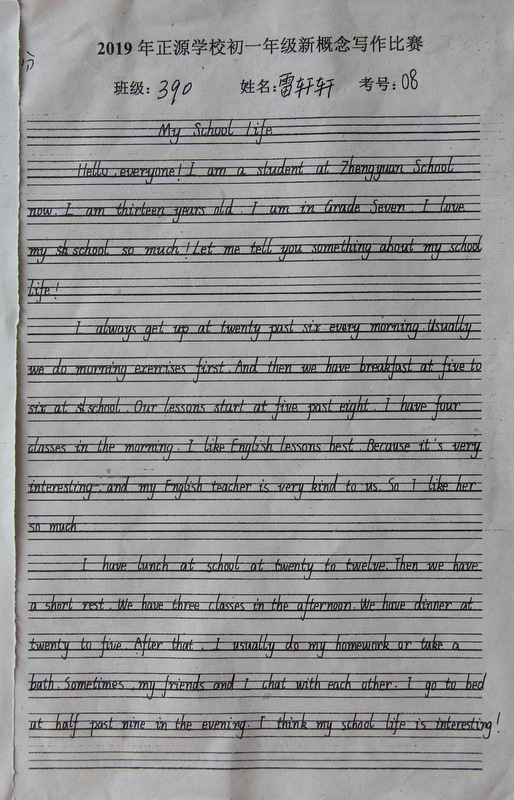 2019年正源学校初一年级新概念写作比赛
班级：390 姓名：雷轩轩 考号：08
My School Life
Hello, everyone! I am a student at Zhengyuan School
now. I am thirteen years old. I am in Grade Seven. I love
my school so much! Let me tell you something about my school
life!
I always get up at twenty past six every morning. Usually
we do morning exercises first. And then we have breakfast at five to
six at school. Our lessons start at five past eight. I have four
classes in the morning. I like English lessons best. Because it's very
interesting and my English teacher is very kind to us. So I like her
so much
I have lunch at school at twenty to twelve. Then we have
a short rest. We have three classes in the afternoon. We have dinner at
twenty to five. After that, I usually do my homework or take a
bath. Sometimes, my friends and I chat with each other. I go to bed
at half past nine in the evening. I think my school life is interesting!